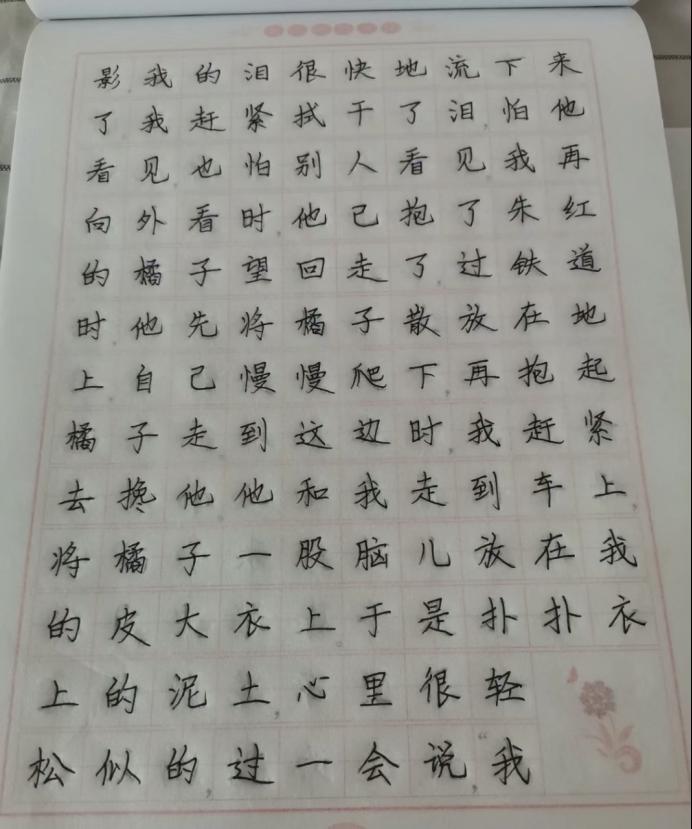 影我的泪很快地流下来
了我赶紧拭干了泪,怕他
看见,也怕别人看见,我再
向外看时,他已抱了朱红
的橘子望回走了,过铁道
时,他先将橘子散放在地
上,自己慢慢爬下,再抱起
橘子走到这边时,我赶紧
去搀他。他和我走到车上,
将橘子一股脑儿放在我
的皮大衣上。于是扑扑衣
上的泥土,心里很轻
松似的,过一会说,“我